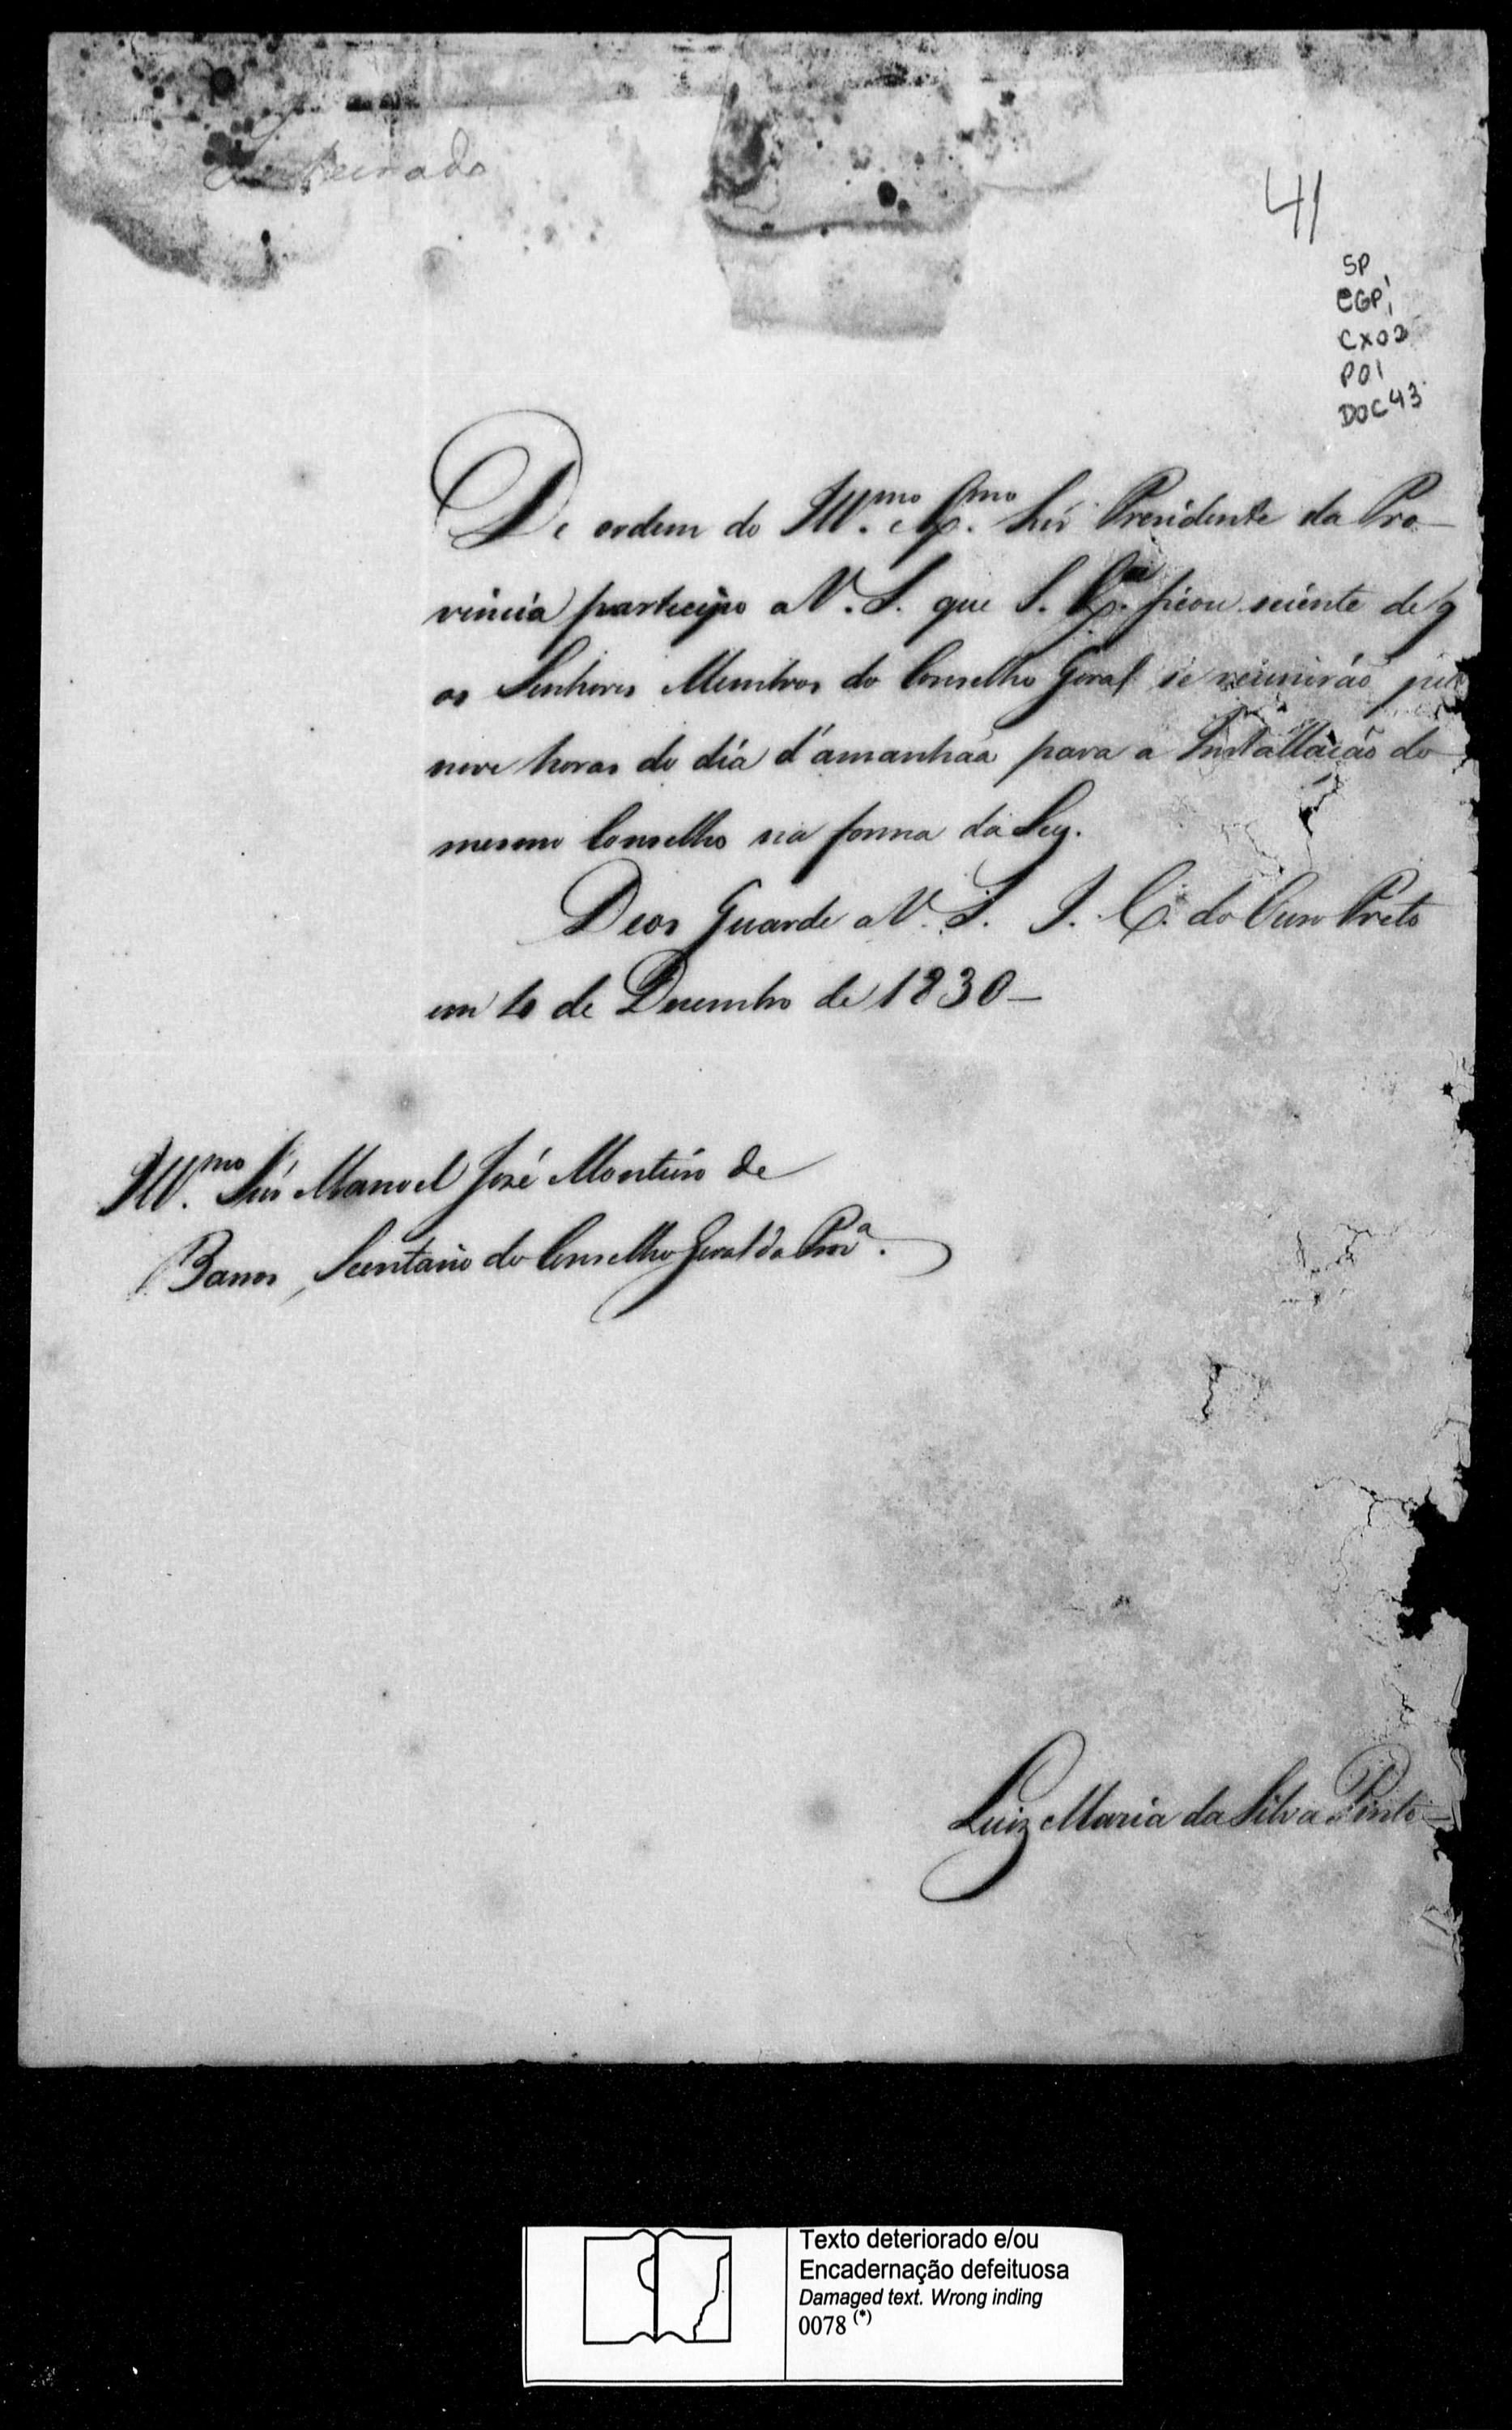 41
SP
CGP1
CX02
P01
DOC43
De ordem do Ill.mo Ex.mo Snr̃ Presidente da Pro-
vincia participo a V. S. que S. Ex.a ficou sciente de q
os Senhores Membros do Conselho Geral se reunirão
nove horas do dia d'amanhãa para a Installação do
mesmo Conselho na forma da Ley.
Deos Guarde a V. S. I. C. do Ouro Preto
em 10 de Dezembro de 1830-
Ill.mo Snr̃ Manoel José Monteiro de
Barros, Secretario do Conselho Geral da Prov.a
Luiz Maria da Silva Pinto
Texto deteriorado e/ou
Encadernação defeituosa
Damaged text. Wrong inding
0078 (*)